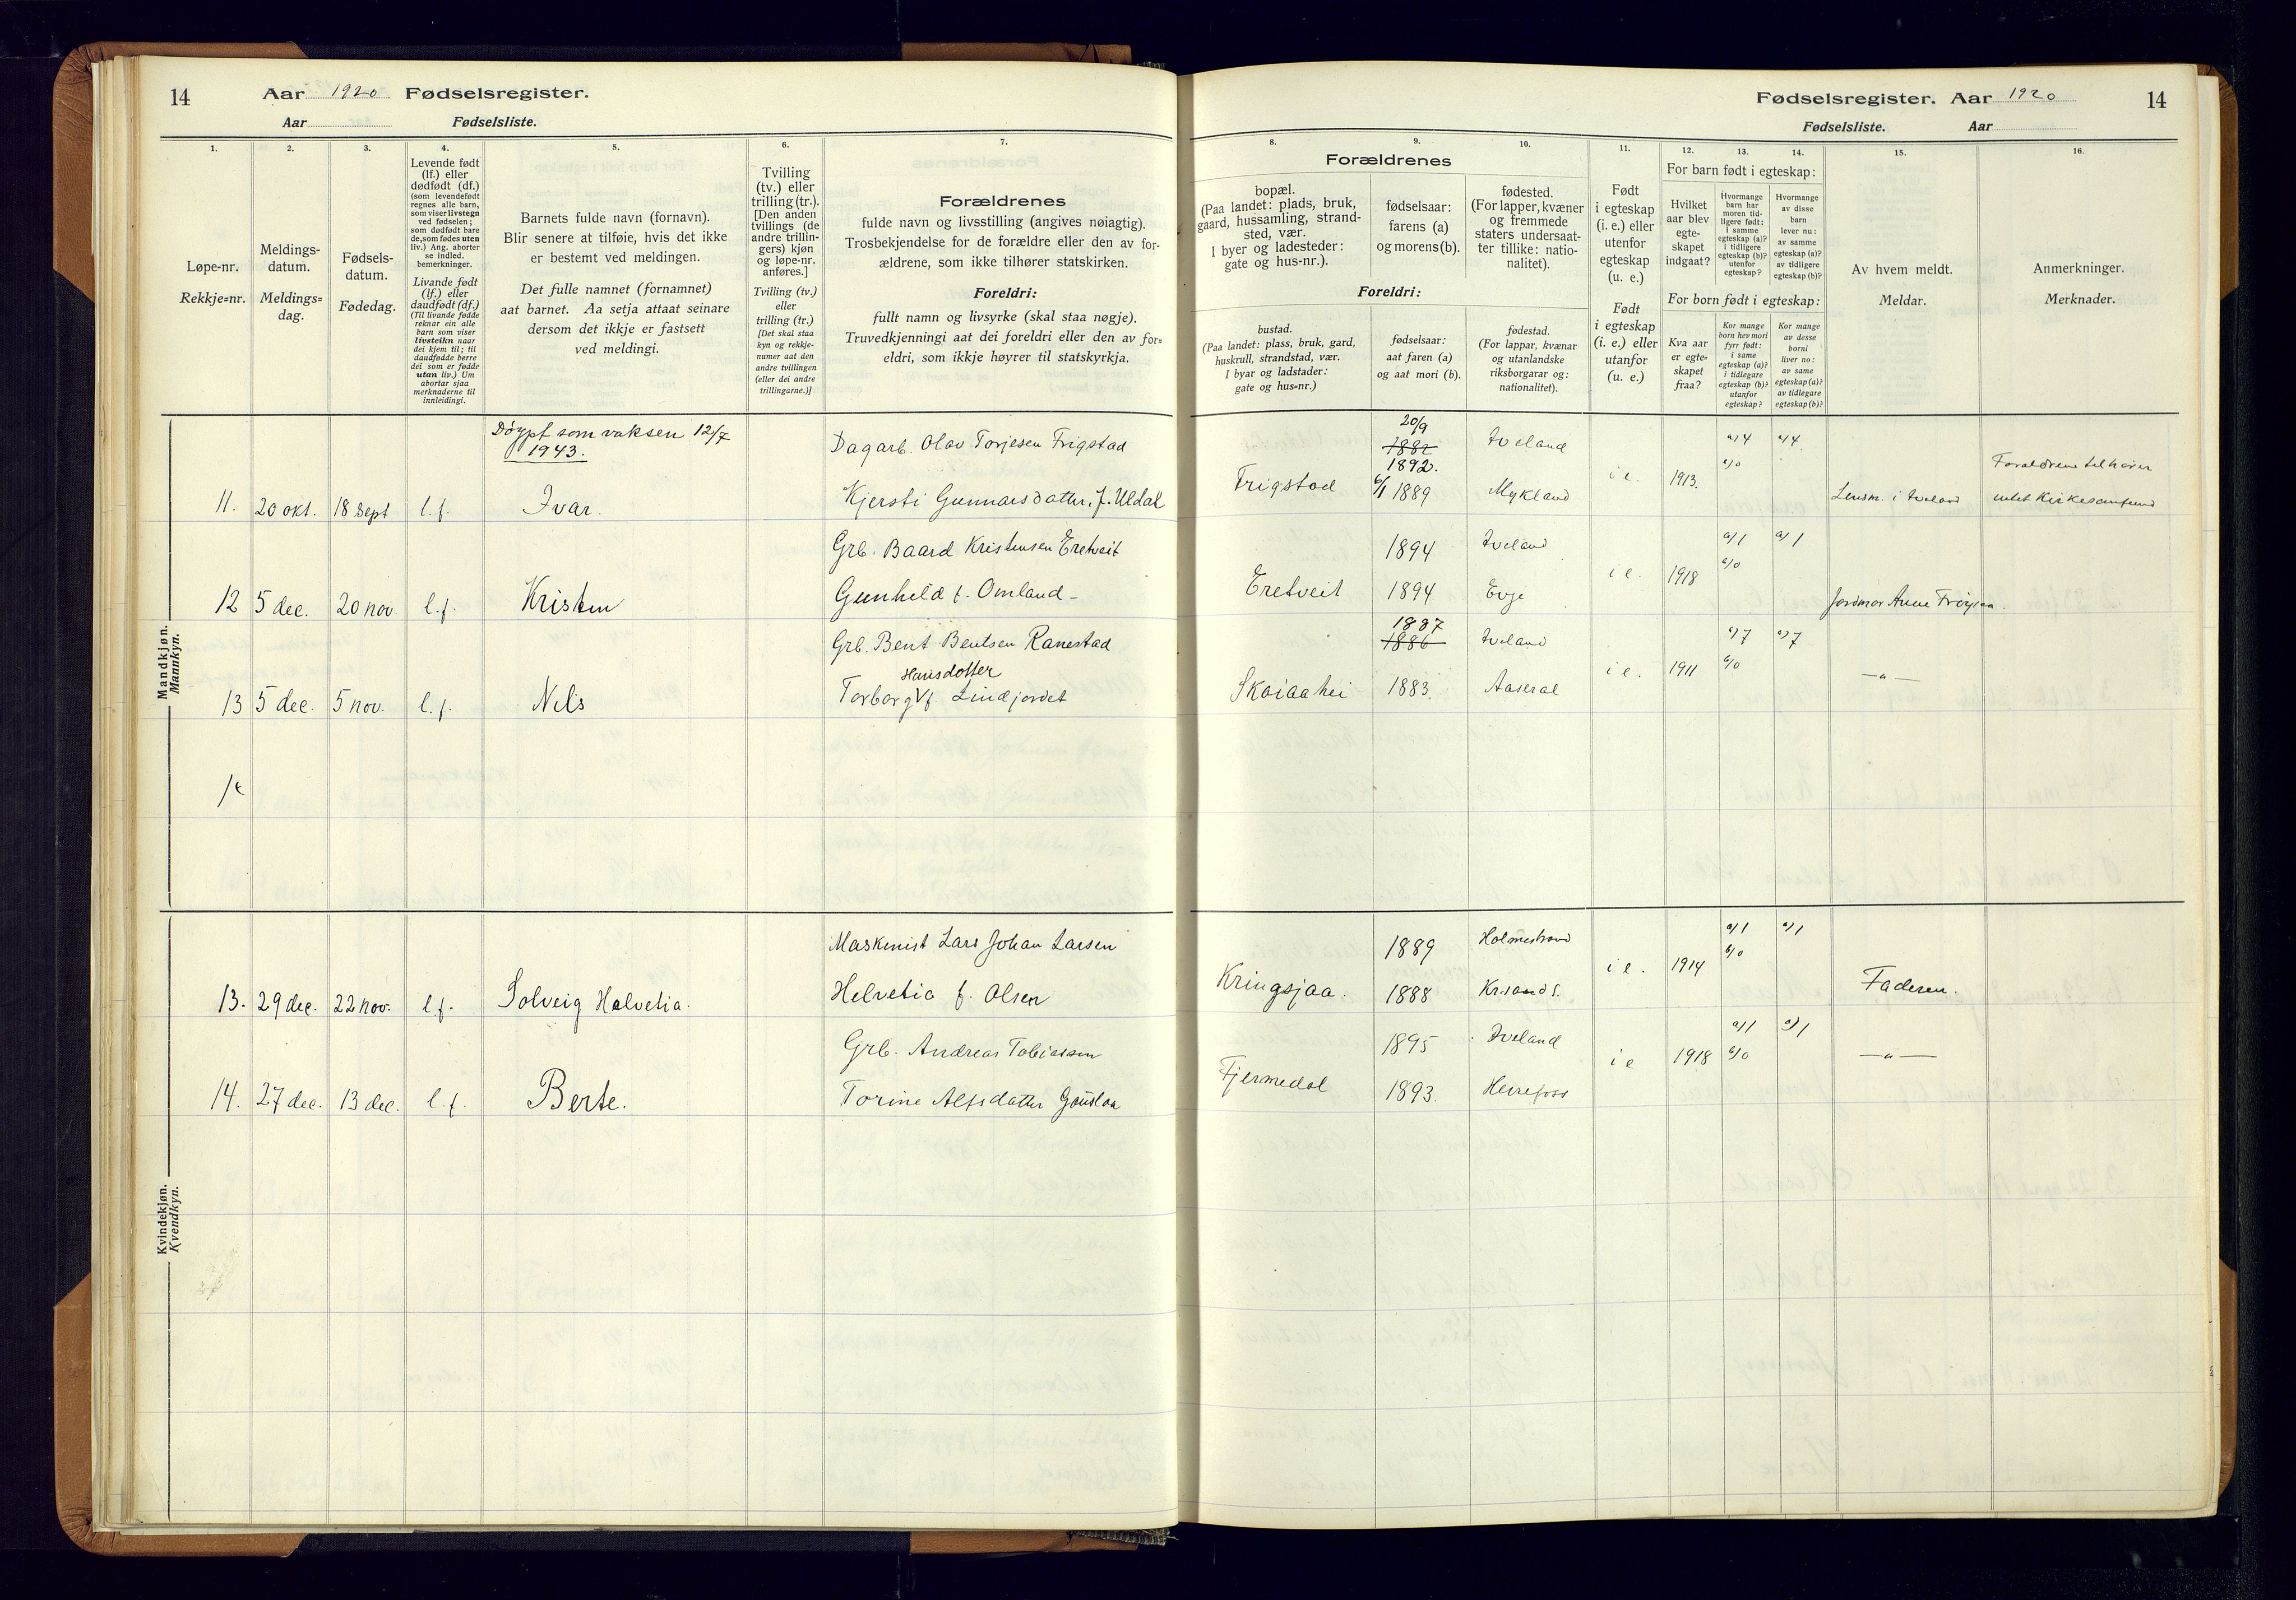 14 Aar 1920 Fødselsregister.
Aar Fødselsliste.
1.
Løpe-nr.
Rekkje=nr.
2.
Meldings-
datum.
Meldings=
dag.
3.
Fødsels-
datum.
Fødedag.
4.
Levende født
(lf.) eller
dødfødt (df.)
(som levendefødt
regnes alle barn,
som viser livstegn
ved fødselen;
som dødfødt bare
de, som fødes uten
liv.) Ang. aborter
se indled.
bemerkninger.
Livande født
(lf.) eller
daudfødt (df.)
(Til livande fødde
reknar ein alle
barn som viser
livsteikn naar
dei kjem til; til
daudfødde berre
dei som er fødde
utan liv.) Um
abortar sjaa
merknaderne til
innleidingi.
5.
Barnets fulde navn (fornavn).
Blir senere at tilføie, hvis det ikke
er bestemt ved meldingen.
Det fulle namnet (fornamnet)
aat barnet. Aa setja attaat seinare
dersom det ikkje er fastsett
ved meldingi.
6.
Tvilling
(tv.) eller
trilling (tr.).
[Den anden
tvillings (de
andre trillin-
gers) kjøn
og løpe-nr.
anføres.]
Tvilling (tv.)
eller
trilling (tr.)
[Det skal staa
kyn og rekkje-
numer aat den
andre tvillingen
(eller dei andre
trillingarne.)]
7.
Forældrenes
fulde navn og livsstilling (angives nøiagtig).
Trosbekjendelse for de forældre eller den av for-
ældrene, som ikke tilhører statskirken.
Foreldri:
fullt namn og livsyrke (skal staa nøgje).
Truvedkjenningi aat dei foreldri eller den av for=
eldri, som ikkje høyrer til statskyrkja.
Mandkjøn.
Mannkyn.
Døypt som vaksen 12/7
1943.
Dagarb. Olav Torjesen Frigstad
11. 20 okt. 18 sept l.f. Ivar. Kjersti Gunnarsdatter, f. Uldal
Grb. Baard Kristensen Eretveit
12 5 dec. 20 nov. l.f. Kristen Gunhild f. Omland-
Grb. Bent Bentsen Ranestad
Hansdotter
13 5 dec. 5 nov. l.f. Nils Torborg f. Lindjordet
14
Kvindekjøn.
Kvendkyn.
Maskinist Lars Johan Larsen
13. 29 dec. 22 nov. l.f. Solveig Helvetia. Helvetia f. Olsen
Grb. Andreas Tobiassen
14. 27 dec. 13 dec. l.f. Berte. Torine Alfsdatter
Fødselsregister. Aar 1920 14
Fødselsliste. Aar
Forældrenes
8.
bopæl.
(Paa landet: plads, bruk,
gaard, hussamling, strand-
sted, vær.
I byer og ladesteder:
gate og hus-nr.).
9.
fødselsaar:
farens (a)
og morens (b).
10.
fødested.
(For lapper, kvæner
og fremmede
staters undersaat-
ter tillike: natio-
nalitet).
Foreldri:
bustad.
(Paa landet: plass, bruk, gard,
huskrull, strandstad, vær.
I byar og ladstader:
gate og hus=nr.)
fødselsaar:
aat faren (a)
og aat mori (b).
fødestad.
(For lappar, kvænar
og utanlandske
riksborgarar og:
nationalitet).
11.
Født
i egteskap
(i. e.) eller
utenfor
egteskap
(u. e.)
Født
i egteskap
(i. e.) eller
utanfor
(u. e.)
12. 13. 14.
For barn født i egteskap:
Hvilket
aar blev
egte-
skapet
indgaat?
Hvormange
barn har
moren tid-
ligere født:
i samme
egteskap (a)?
i tidligere
egteskap (b)?
utenfor
egteskap?
Hvormange
av disse
barn
lever nu:
av samme
egteskap (a)?
av tidligere
egteskap (b)?
For born født i egteskap:
Kva aar
er egte=
skapet
fraa?
Kor mange
born hev mori
fyrr født:
i same
egteskap (a)?
i tidlegare
egteskap (b)?
utanfor
egteskap?
Kor mange
av desse
borni
liver no:
av same
egteskap (a)?
av tidlegare
egteskap (b)?
15.
Av hvem meldt.
Meldar.
16.
Anmerkninger.
Merknader.
20/9
1882 Iveland a) 4 a) 4
1892. b) 0
Frigstad 6/1 1889 Mykland i e. 1913. Lensm. i Iveland Forældrene tilhører
intet Kirkesamfund
1894 Iveland a) 1 a) 1
Eretveit 1894 Evje i e. 1918 b) 0 Jordmor Anne Frøysaa.
1887
1886 Iveland a) 7 a) 7
Skaiaahei 1883. Aaseral i e. 1911 b) 0 —"—
1889 Holmestrand a) 1 a) 1
Kringsjaa. 1888 Kr.sand S. i e. 1914 b) 0 Faderen.
1895 Iveland a) 1 a) 1
Fjermedal 1893. Herefoss i e 1918 b) 0 —"—